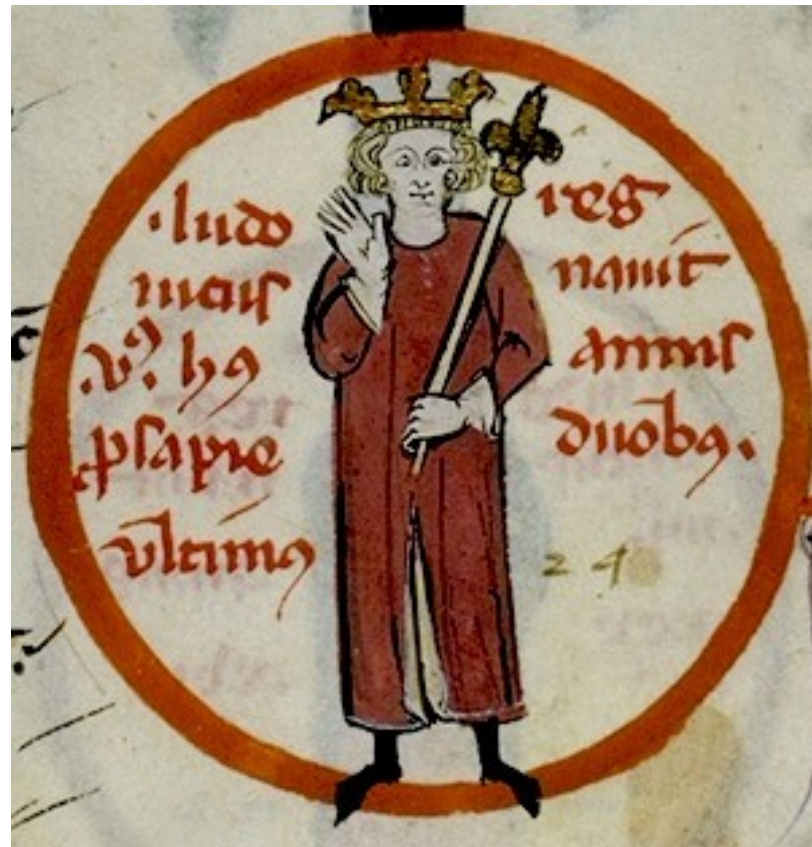 ·ludo
uicus
·vꝰ· hꝰ
ꝓsapie
vltimꝰ
reg
nauit
annis
duob̄ꝫ.
24